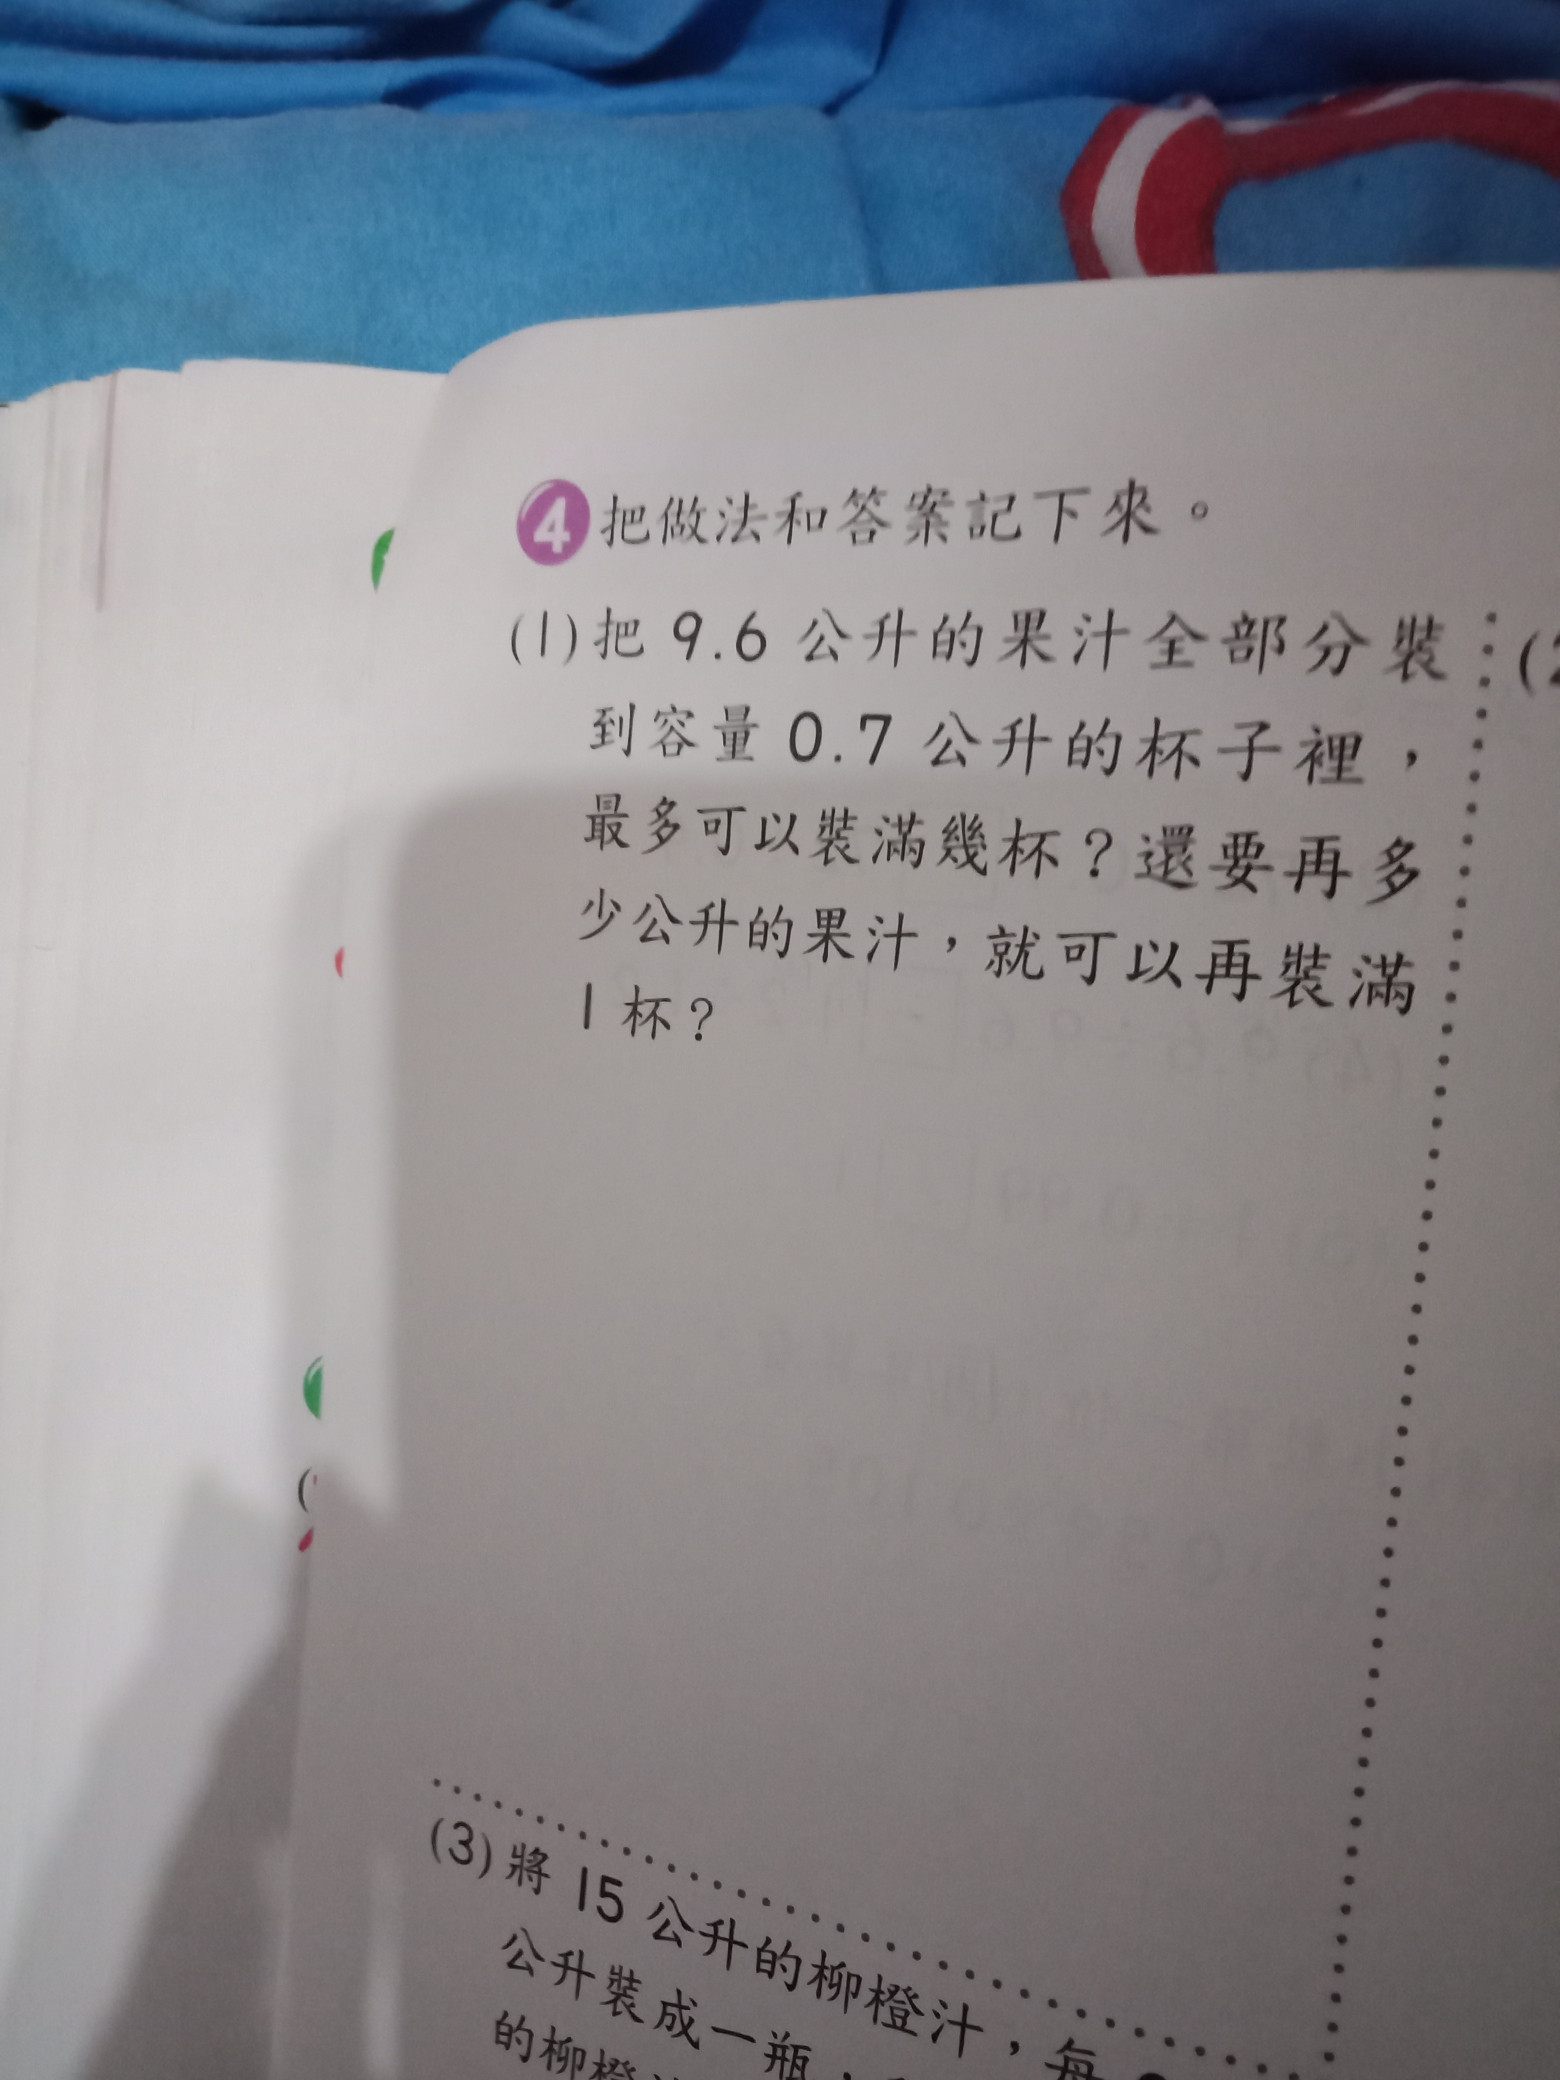 4 把做法和答案記下來。
(1) 把 9.6 公升的果汁全部分裝
到容量 0.7 公升的杯子裡，
最多可以裝滿幾杯？還要再多
少公升的果汁，就可以再裝滿
1 杯？
(3) 將 15 公升的柳橙汁，每
公升裝成一瓶，
的柳橙